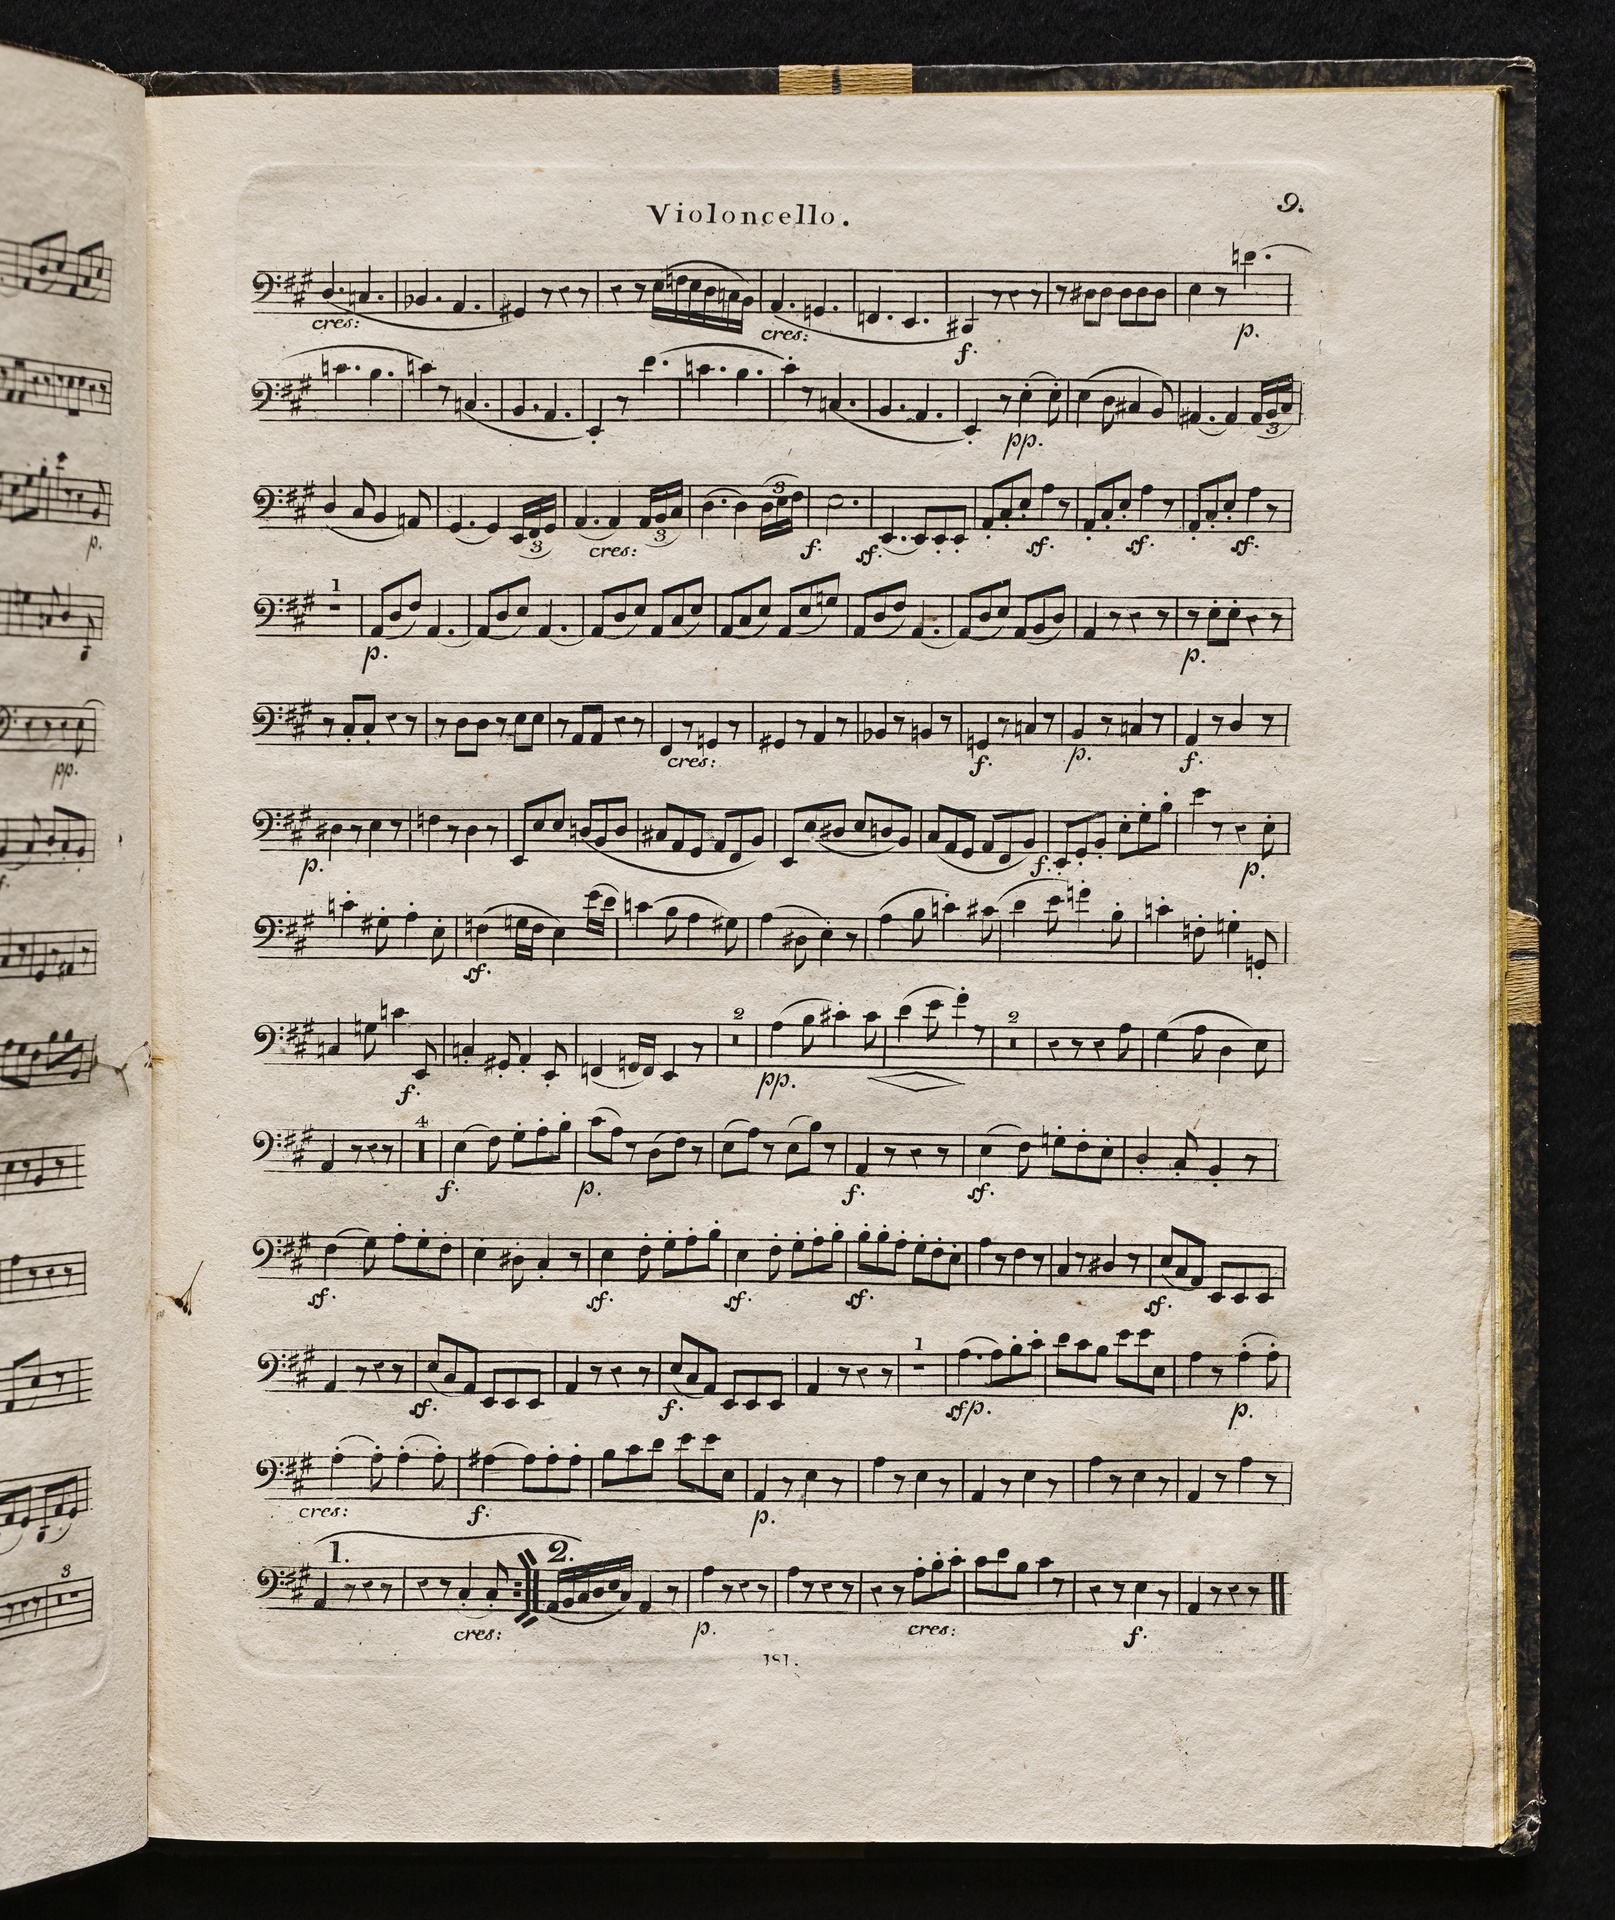 Violoncello.
9.
cres:
cres:
f.
p.
pp.
3
3
3
3
cres:
f.
sf.
sf.
sf.
sf.
p.
1
p.
p.
pp.
cres:
f.
p.
f.
p.
f.
p.
sf.
2
2
f.
pp.
4
f.
p.
f.
sf.
sf.
sf.
sf.
sf.
sf.
1
sf.
f.
sfp.
p.
cres:
f.
p.
3
1.
2.
cres:
p.
cres:
f.
181.